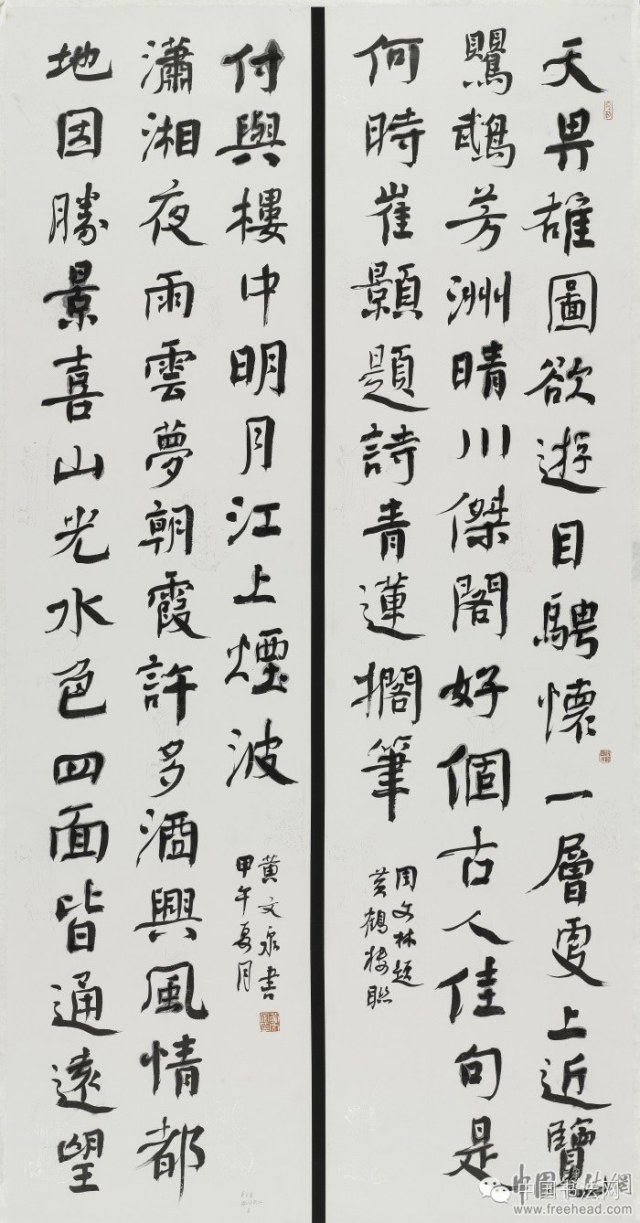 天畀雄圖欲遊目騁懷一層更上近覽
鸚鵡芳洲晴川傑閣好個古人佳句是
何時崔顥題詩青蓮擱筆
周文林題
黃鶴樓聯
地因勝景喜山光水色四面皆通遠望
瀟湘夜雨雲夢朝霞許多酒興風情都
付與樓中明月江上煙波
甲午夏月
黃文泉書
中国书法网
www.freehead.com